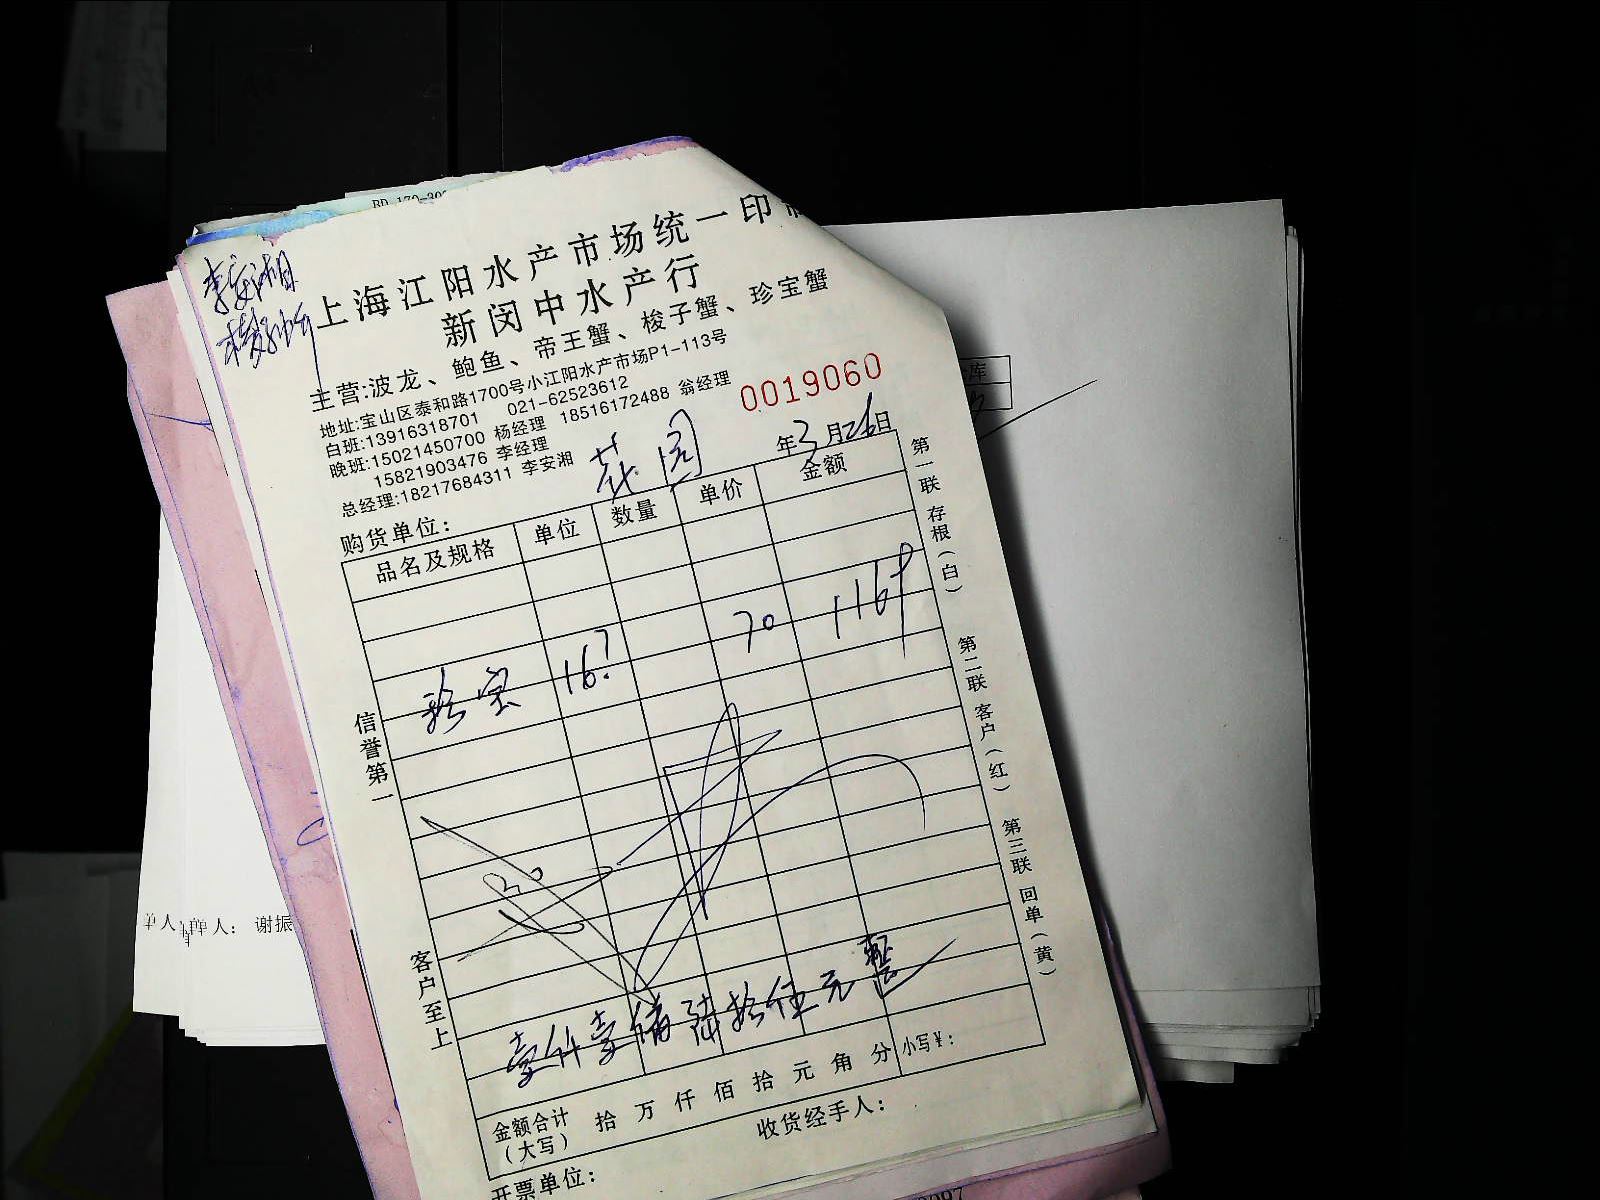 李安湘
上海江阳水产市场统一印
新闵中水产行
主营:波龙、鲍鱼、帝王蟹、梭子蟹、珍宝蟹
地址:宝山区泰和路1700号小江阳水产市场P1-113号
白班:13916318701 021-62523612
晚班:15021450700 杨经理 18516172488 翁经理
15821903476 李经理
总经理:18217684311 李安湘
0019060
购货单位: 花园 年3月26日
品名及规格 单位 数量 单价 金额
珍宝 16.7 70 1169
壹仟壹佰陆拾伍元整
金额合计 拾 万 仟 佰 拾 元 角 分 小写¥:
(大写)
收货经手人:
开票单位:
信誉第一
客户至上
第一联 存根(白)
第二联 客户(红)
第三联 回单(黄)
单人
单人: 谢振
库